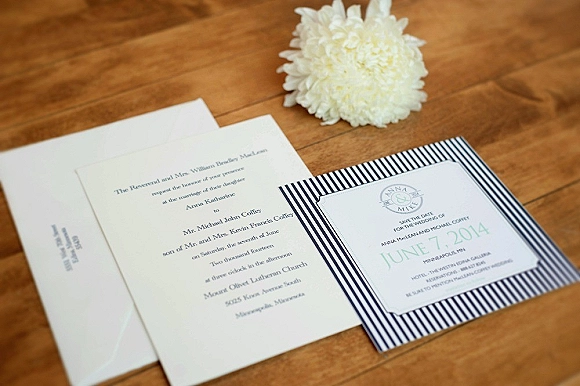 The Reverend and Mrs. William Bradley MacLean
request the honour of your presence
at the marriage of their daughter
Anna Katharine
to
Mr. Michael John Coffey
son of Mr. and Mrs. Kevin Francis Coffey
Saturday, the seventh of June
Two thousand fourteen
at three o'clock in the afternoon
Mount Olivet Lutheran Church
5025 Knox Avenue South
Minneapolis, Minnesota
ANNA
&
MIKE
SAVE THE DATE
FOR THE WEDDING OF
ANNA MacLEAN AND MICHAEL COFFEY
JUNE 7, 2014
MINNEAPOLIS MN
HOTEL - THE WESTIN EDINA GALLERIA
RESERVATIONS - 888.627.8241
BE SURE TO MENTION MacLEAN-COFFEY WEDDING